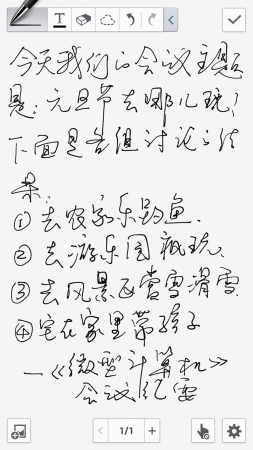 今天我们的会议主题
是：元旦节去哪儿玩？
下面是各组讨论之结
果：
① 去农家乐钓鱼.
② 去游乐园疯玩.
③ 去风景区赏雪滑雪
④ 宅在家里带孩子
—《微型计算机》
会议纪要
1/1